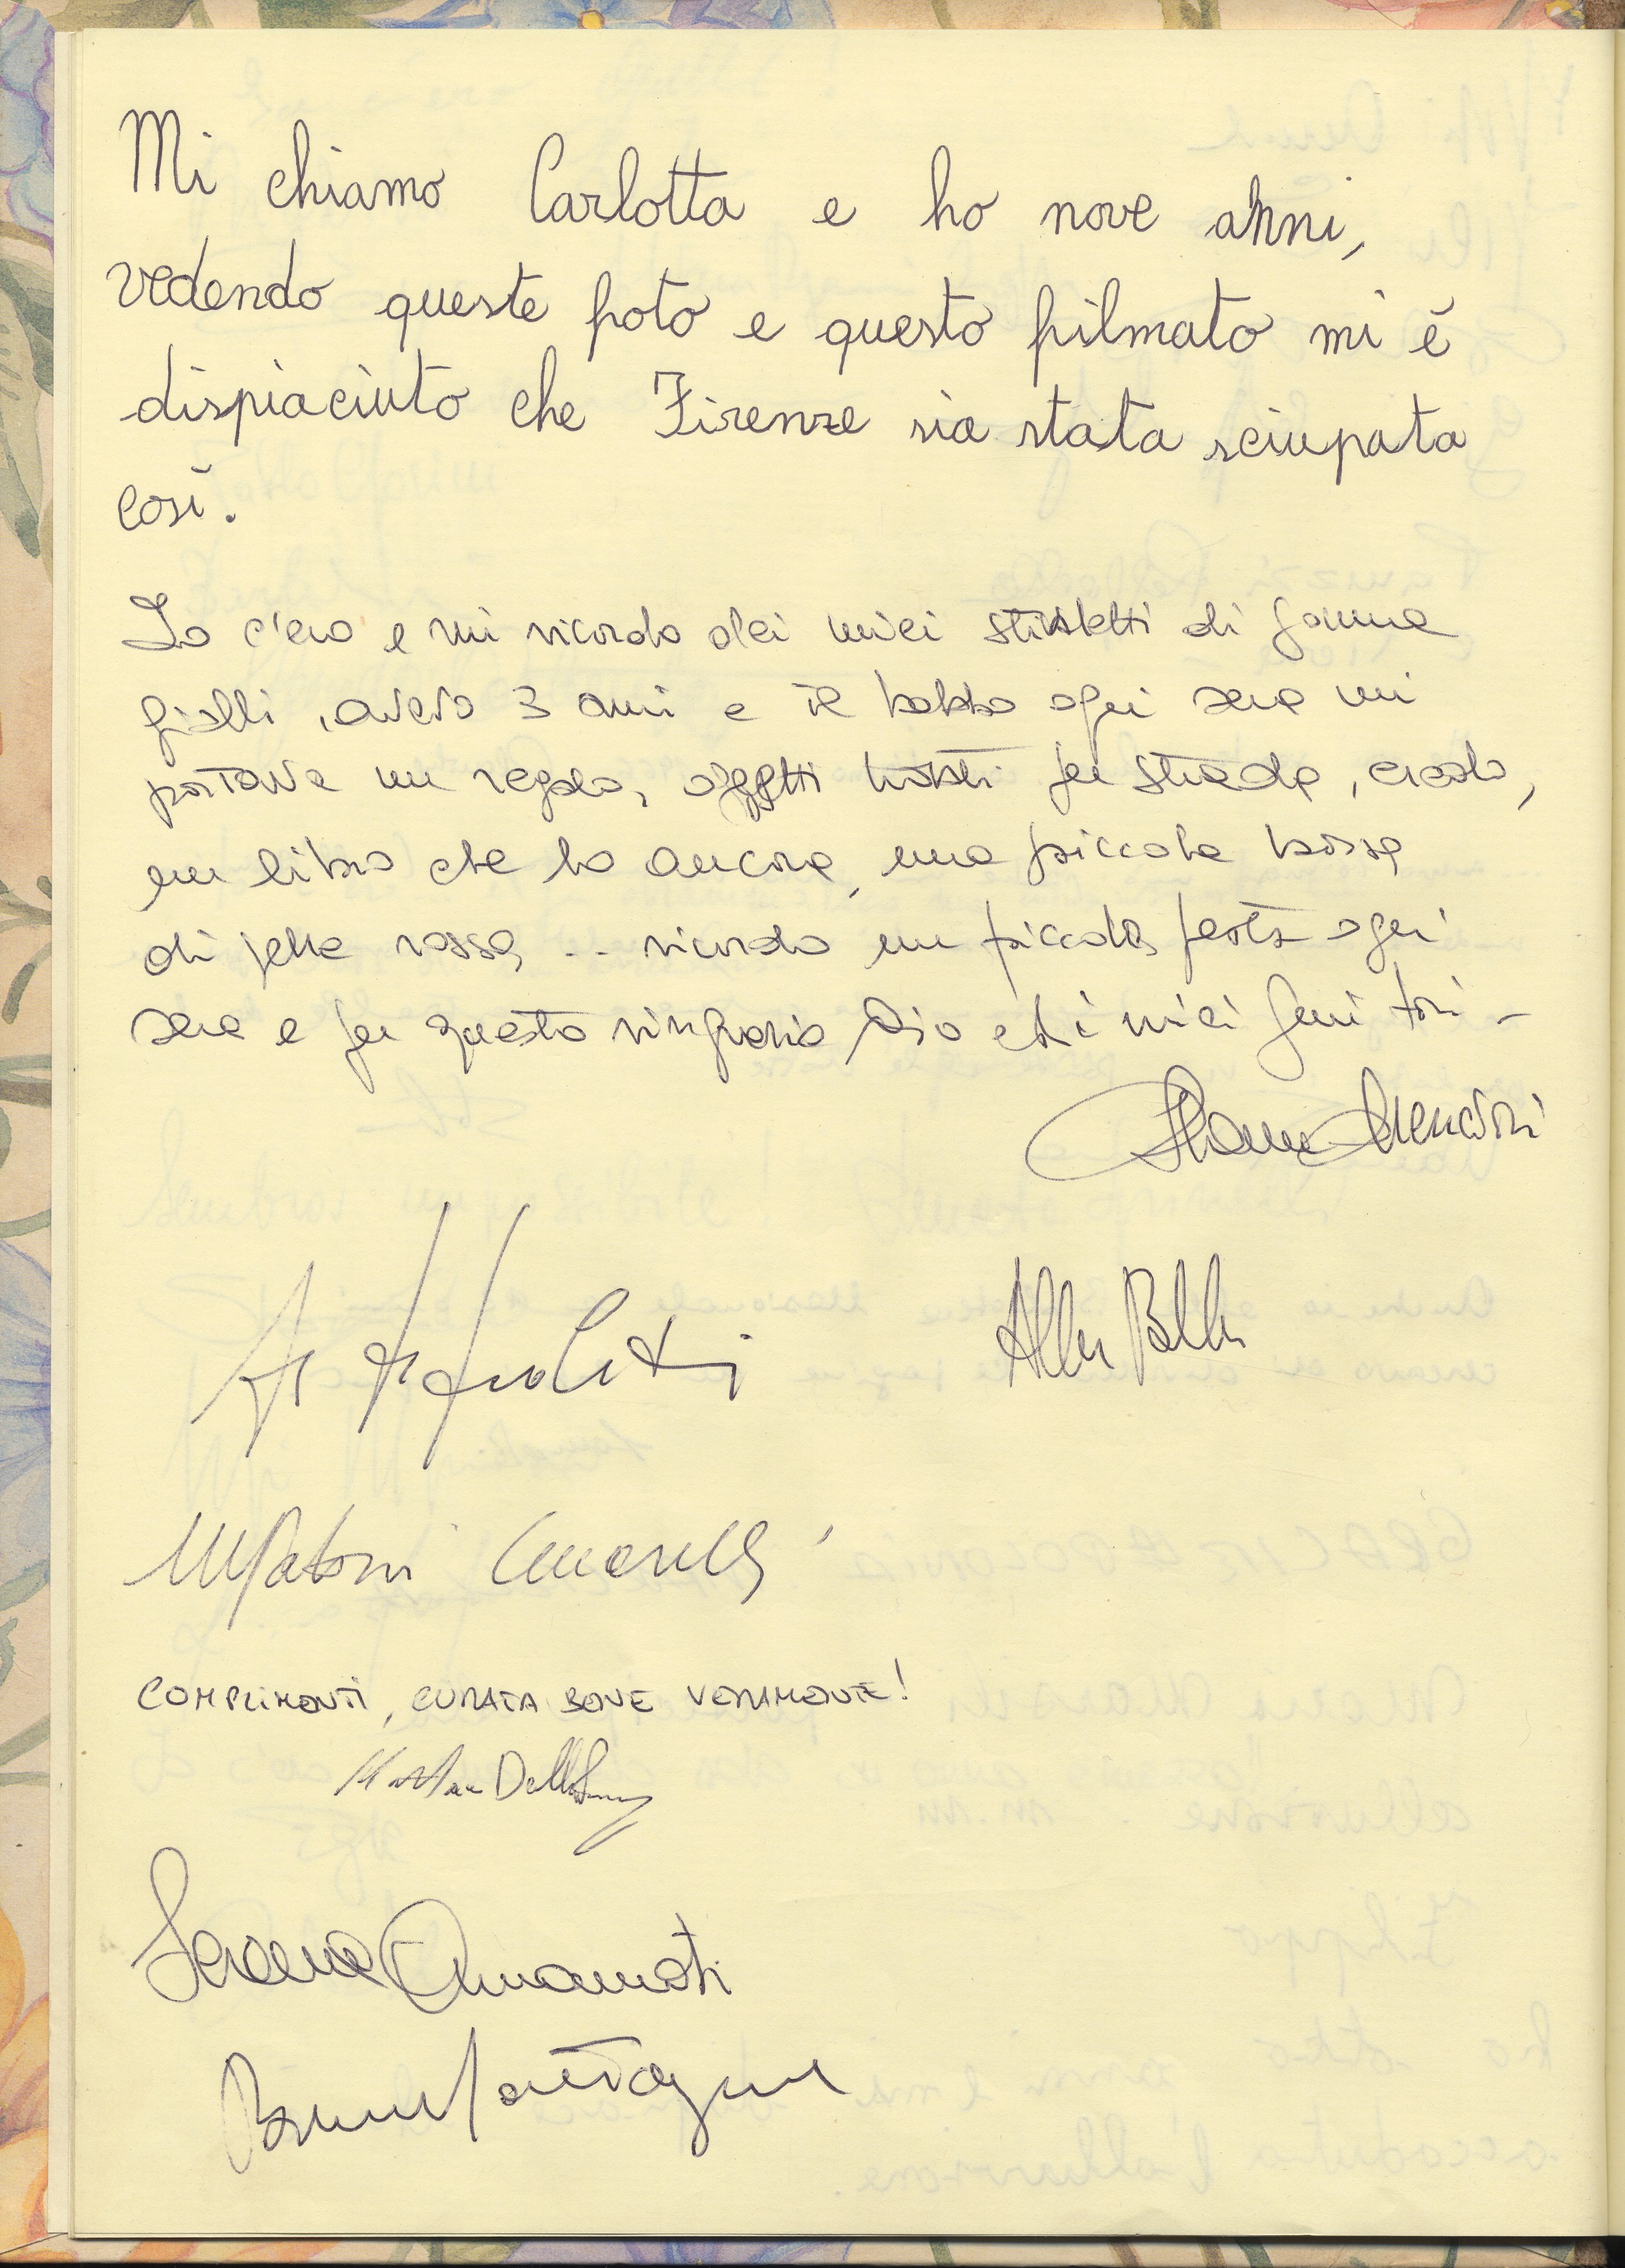 Mi chiamo Carlotta e ho nove anni,
vedendo queste foto e questo filmato mi è
dispiaciuto che Firenze sia stata sciupata
così.
Io c'ero e mi ricordo dei miei stivaletti di gomma
gialli, avevo 3 anni e il babbo ogni sera mi
portava un regalo, oggetti trovati per strada, credo,
un libro che ho ancora, una piccola borsa
di pelle rossa, .. ricordo una piccola festa ogni
sera e per questo ringrazio Dio ed i miei genitori -
COMPLIMENTI, CURATA BENE VERAMENTE!
Serena Innamorati